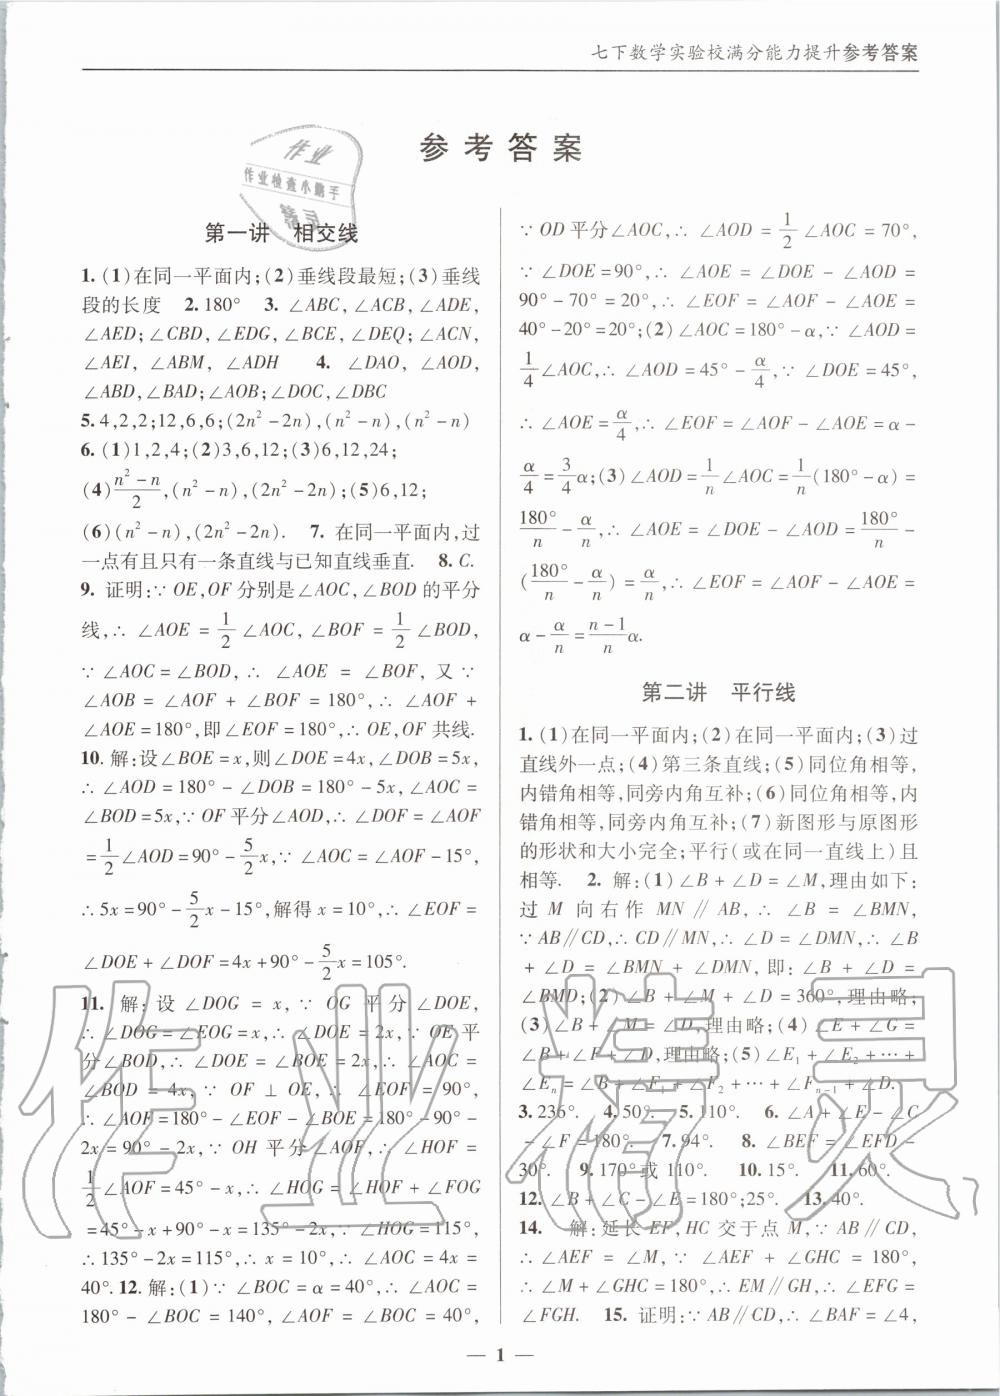 七下数学实验校满分能力提升参考答案
参考答案
作业
作业检查小助手
精灵
第一讲 相交线
1. (1)在同一平面内;(2)垂线段最短;(3)垂线
段的长度 2. 180° 3. ∠ABC, ∠ACB, ∠ADE,
∠AED; ∠CBD, ∠EDG, ∠BCE, ∠DEQ; ∠ACN,
∠AEI, ∠ABM, ∠ADH 4. ∠DAO, ∠AOD,
∠ABD, ∠BAD; ∠AOB; ∠DOC, ∠DBC
5. 4,2,2;12,6,6;(2n²-2n),(n²-n),(n²-n)
6. (1)1,2,4;(2)3,6,12;(3)6,12,24;
(4)(n²-n)/2,(n²-n),(2n²-2n);(5)6,12;
(6)(n²-n),(2n²-2n). 7. 在同一平面内,过
一点有且只有一条直线与已知直线垂直. 8. C.
9. 证明:∵OE,OF分别是∠AOC,∠BOD的平分
线,∴∠AOE=1/2∠AOC,∠BOF=1/2∠BOD,
∵∠AOC=∠BOD,∴∠AOE=∠BOF,又∵
∠AOB=∠AOF+∠BOF=180°,∴∠AOF+
∠AOE=180°,即∠EOF=180°,∴OE,OF共线.
10. 解:设∠BOE=x,则∠DOE=4x,∠DOB=5x,
∴∠AOD=180°-∠DOB=180°-5x,∠AOC=
∠BOD=5x,∵OF平分∠AOD,∴∠DOF=∠AOF
=1/2∠AOD=90°-5/2x,∵∠AOC=∠AOF-15°,
∴5x=90°-5/2x-15°,解得x=10°,∴∠EOF=
∠DOE+∠DOF=4x+90°-5/2x=105°.
11. 解:设∠DOG=x,∵OG平分∠DOE,
∴∠DOG=∠EOG=x,∴∠DOE=2x,∵OE平
分∠BOD,∴∠DOE=∠BOE=2x,∴∠AOC=
∠BOD=4x,∵OF⊥OE,∴∠EOF=90°,
∴∠AOF=180°-∠EOF-∠BOE=180°-90°-
2x=90°-2x,∵OH平分∠AOF,∴∠HOF=
1/2∠AOF=45°-x,∴∠HOG=∠HOF+∠FOG
=45°-x+90°-x=135°-2x,∵∠HOG=115°,
∴135°-2x=115°,∴x=10°,∴∠AOC=4x=
40°. 12. 解:(1)∵∠BOC=α=40°,∴∠AOC=
180°-∠BOC=140°,∠AOF=∠BOC=40°,
∵OD平分∠AOC,∴∠AOD=1/2∠AOC=70°,
∵∠DOE=90°,∴∠AOE=∠DOE-∠AOD=
90°-70°=20°,∴∠EOF=∠AOF-∠AOE=
40°-20°=20°;(2)∠AOC=180°-α,∵∠AOD=
1/4∠AOC,∴∠AOD=45°-α/4,∵∠DOE=45°,
∴∠AOE=α/4,∴∠EOF=∠AOF-∠AOE=α-
α/4=3/4α;(3)∠AOD=1/n∠AOC=1/n(180°-α)=
180°/n-α/n,∴∠AOE=∠DOE-∠AOD=180°/n-
(180°/n-α/n)=α/n,∴∠EOF=∠AOF-∠AOE=
α-α/n=(n-1)/nα.
第二讲 平行线
1. (1)在同一平面内;(2)在同一平面内;(3)过
直线外一点;(4)第三条直线;(5)同位角相等,
内错角相等,同旁内角互补;(6)同位角相等,内
错角相等,同旁内角互补;(7)新图形与原图形
的形状和大小完全;平行(或在同一直线上)且
相等. 2. 解:(1)∠B+∠D=∠M,理由如下:
过M向右作MN∥AB,∴∠B=∠BMN,
∵AB∥CD,∴CD∥MN,∴∠D=∠DMN,∴∠B
+∠D=∠BMN+∠DMN,即:∠B+∠D=
∠BMD;(2)∠B+∠M+∠D=360°,理由略;
(3)∠B+∠M=∠D,理由略;(4)∠E+∠G=
∠B+∠F+∠D,理由略;(5)∠E₁+∠E₂+…+
∠Eₙ=∠B+∠F₁+∠F₂+…+∠Fₙ₋₁+∠D.
3. 236°. 4. 50°. 5. 110°. 6. ∠A+∠E-∠C
-∠F=180°. 7. 94°. 8. ∠BEF=∠EFD-
30°. 9. 170°或110°. 10. 15°. 11. 60°.
12. ∠B+∠C-∠E=180°;25°. 13. 40°.
14. 解:延长EF,HC交于点M,∵AB∥CD,
∴∠AEF=∠M,∵∠AEF+∠GHC=180°,
∴∠M+∠GHC=180°,∴EM∥GH,∴∠EFG=
∠FGH. 15. 证明:∵AB∥CD,∴∠BAF=∠4,
— 1 —
作业精灵